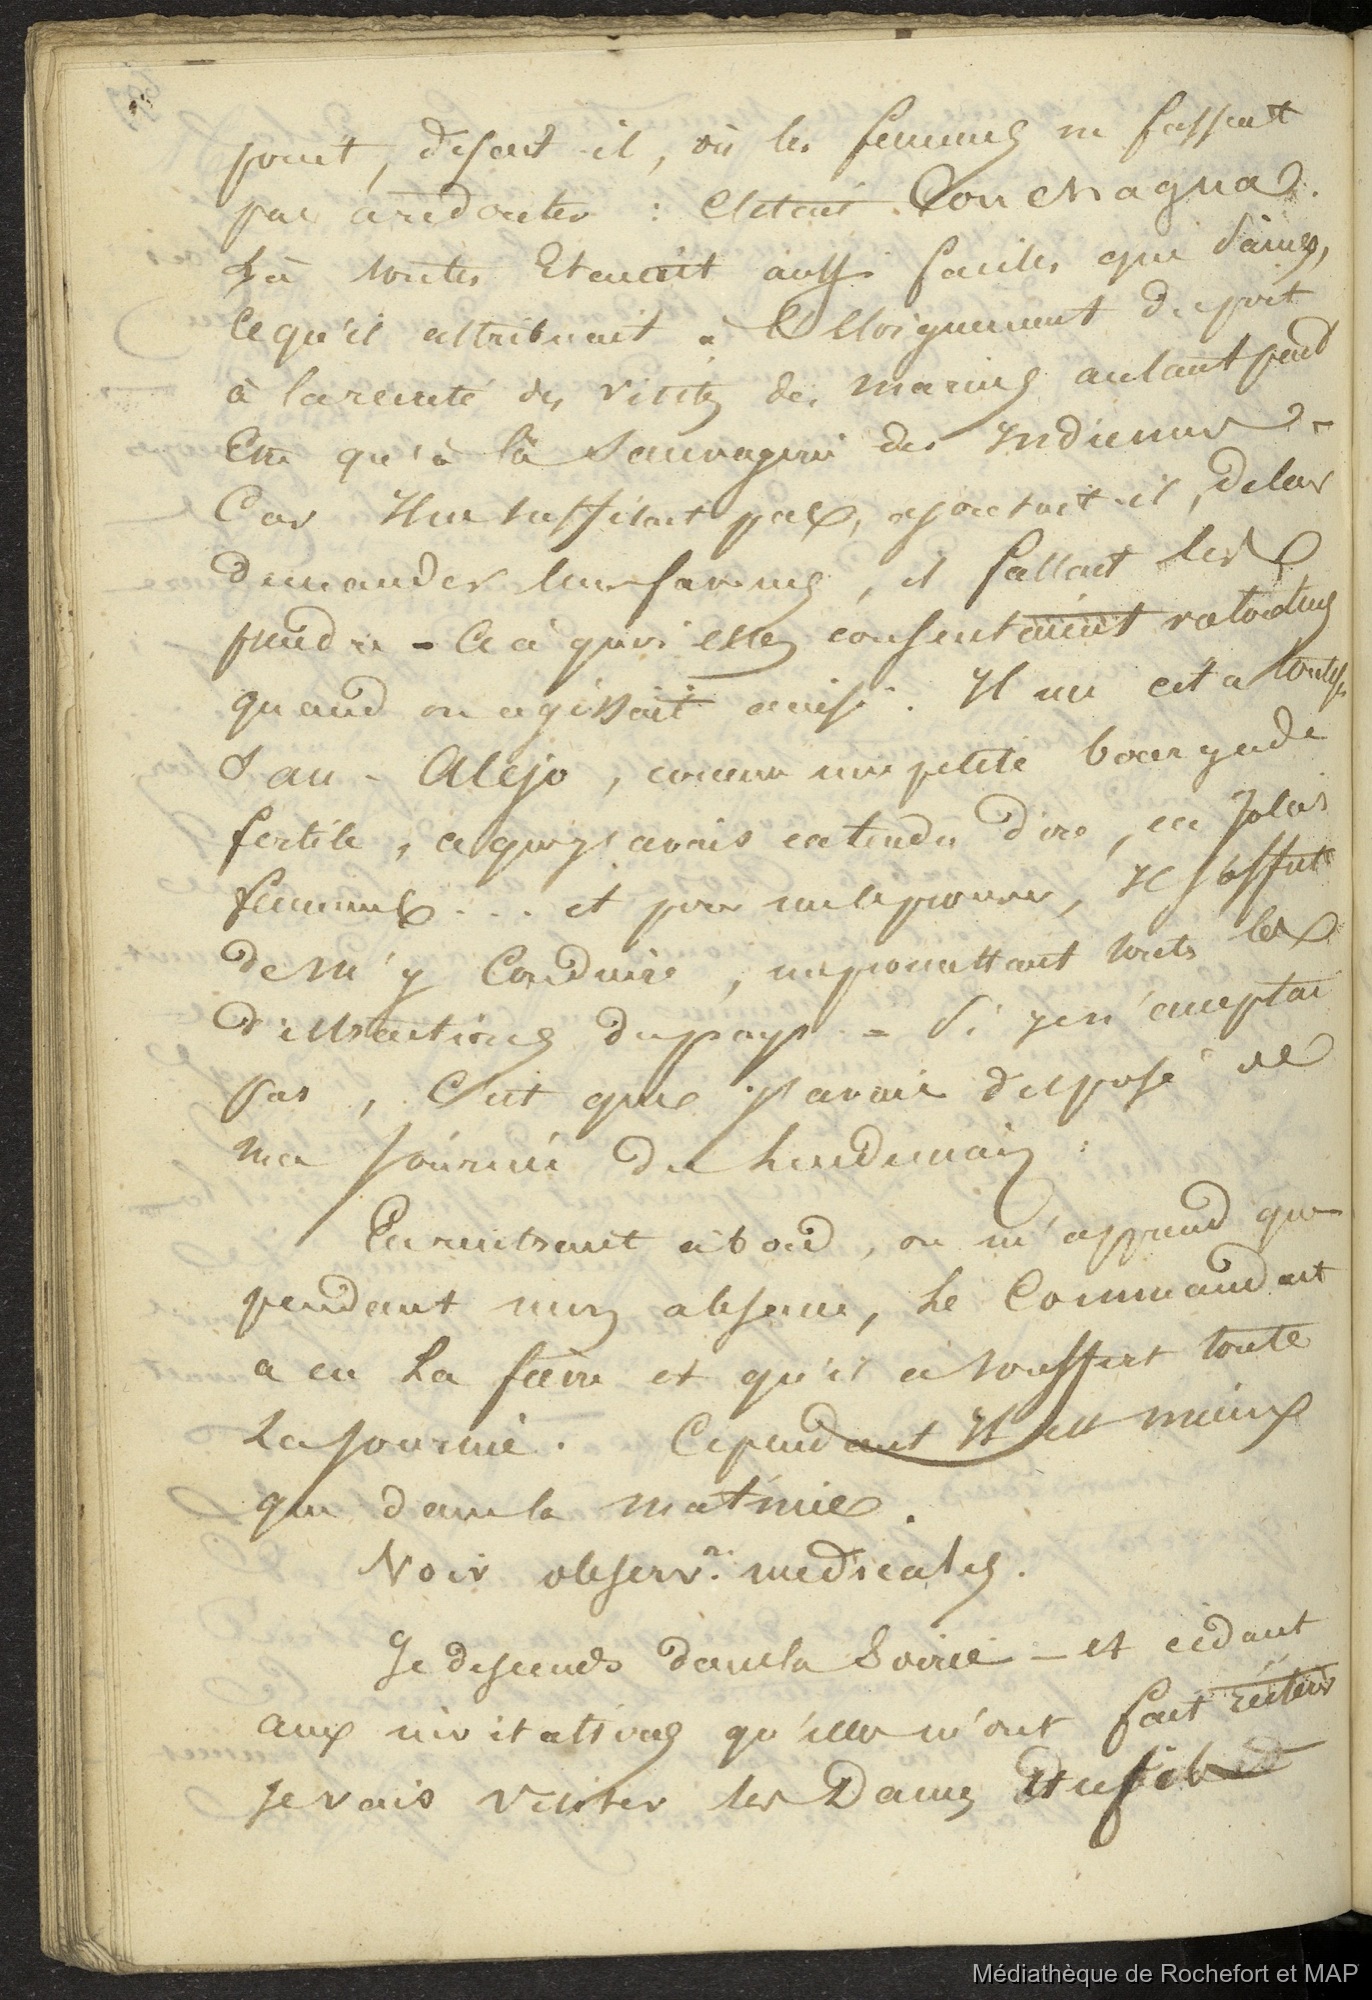 point, disait-il, où les femmes ne fussent
pas à redouter : c'était Conchagua.
Là toutes étaient aussi faciles que saines,
ce qu'il attribuait à l'éloignement du port
à la rareté des visites des marins autant peut
être qu'à la sauvagerie des Indiennes -
Car Il ne suffisait pas, ajoutait-il, de leur
demander leurs faveurs, il fallait les
prendre - Ce à quoi elles consentaient
quand on agissait ainsi. Il me cita
San-Alejo, comme une petite bourgade
fertile, à ce que j'avais entendu dire, en jolies
femmes... et pour me le prouver, Il s'offrit
de m'y Conduire, me promettant toutes les
distractions du pays = Si je n'acceptai
pas, C'est que j'avais disposé de
ma journée du lendemain :
En rentrant à bord, on m'apprend que
pendant mon absence, Le Commandant
a eu La fièvre et qu'il a souffert toute
La journée. Cependant Il est mieux
que dans la matinée.
Voir observ.ns médicales.
Je descends dans la Soirée - et cédant
aux invitations qu'elles m'ont fait
Je vais visiter les Dames
Médiathèque de Rochefort et MAP